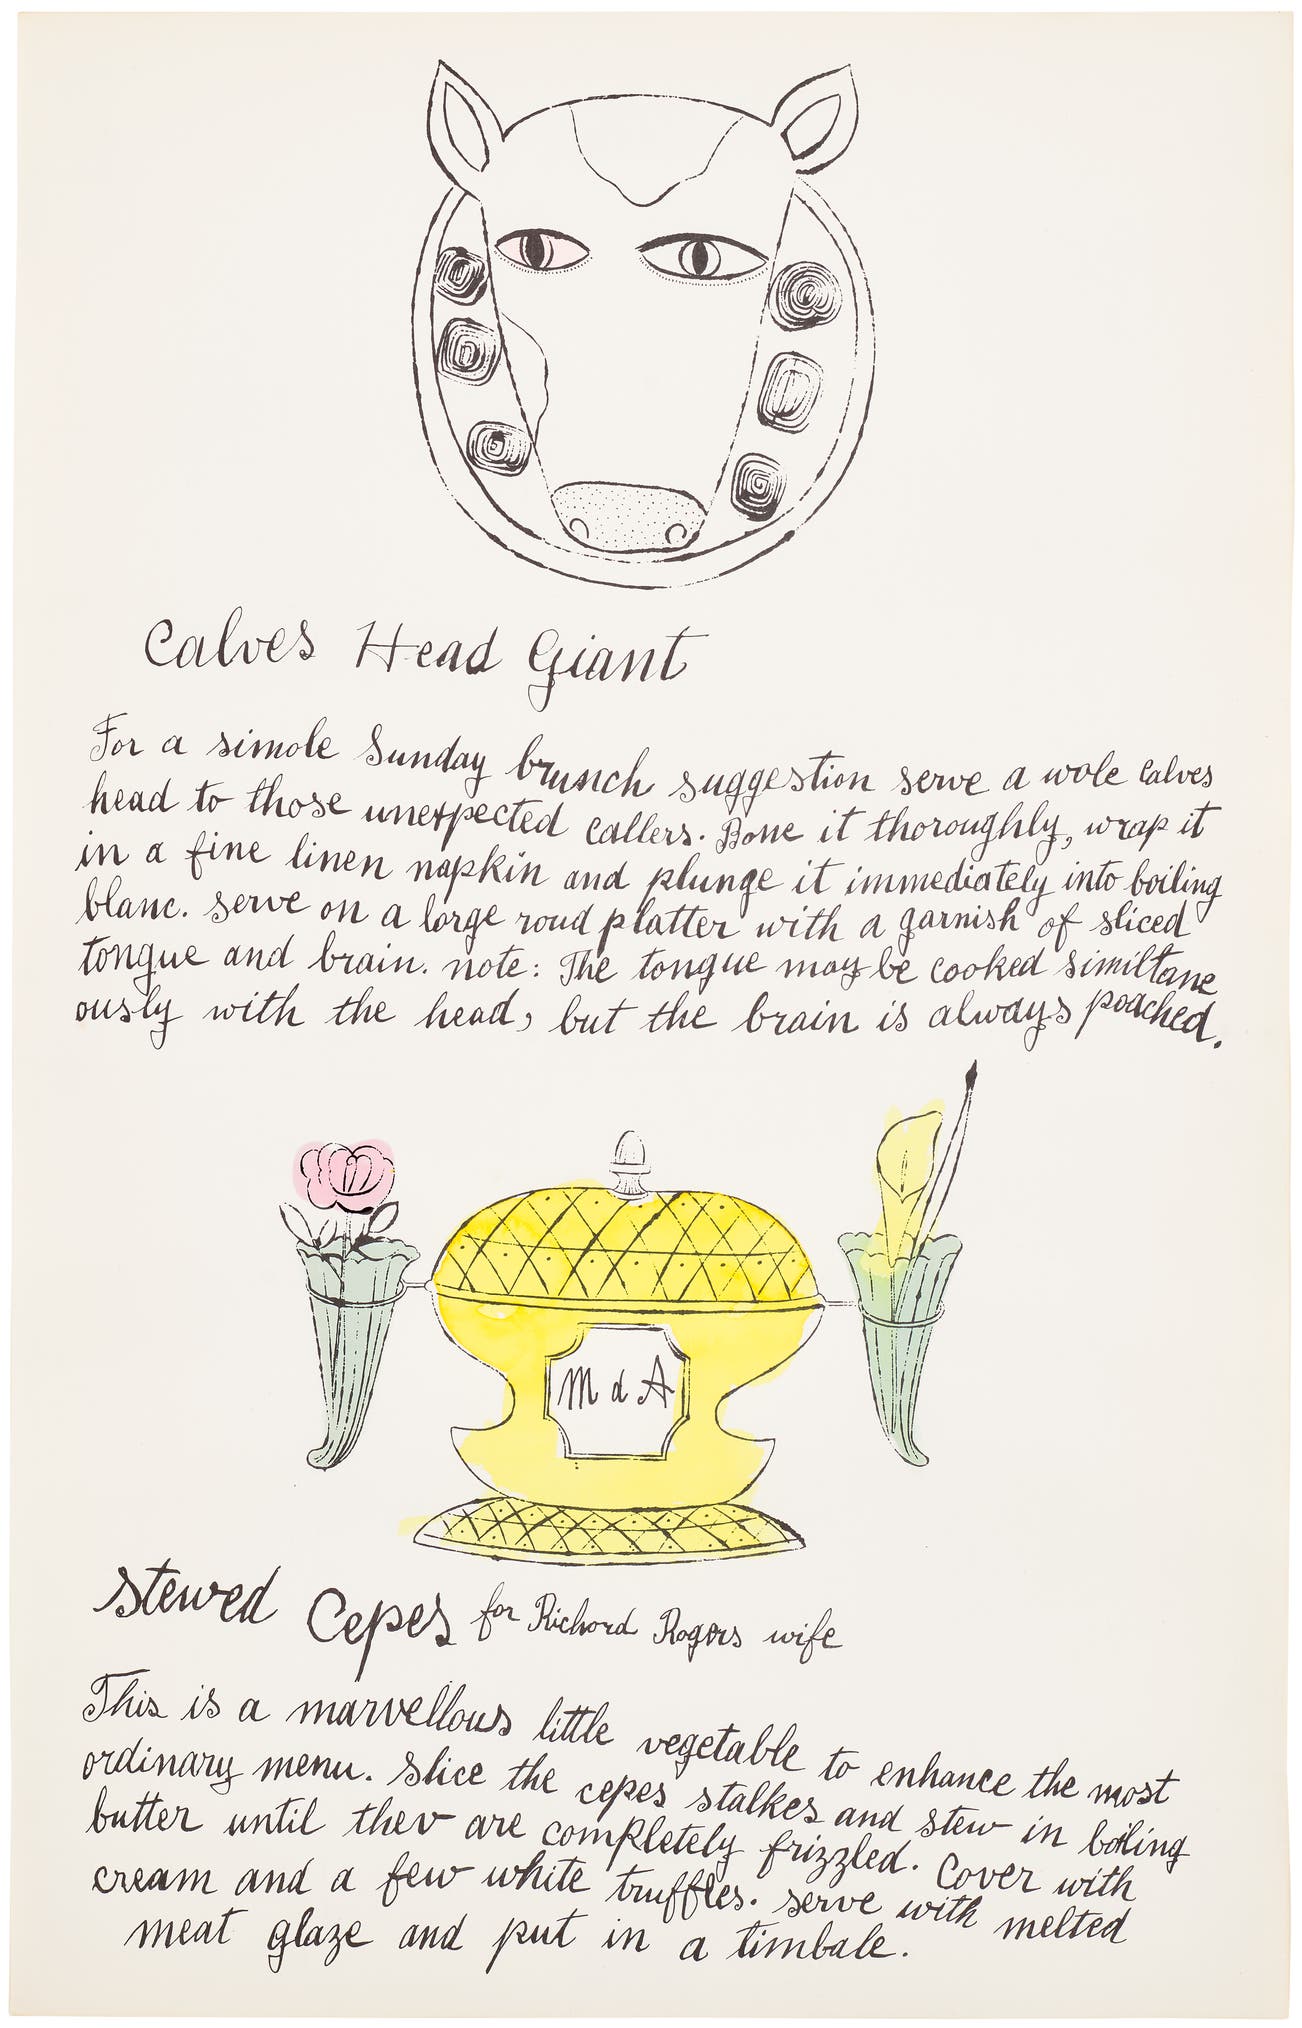 Calves Head Giant
For a simole Sunday brunch suggestion serve a wole calves
head to those unexpected callers. Bone it thoroughly, wrap it
in a fine linen napkin and plunge it immediately into boiling
blanc. serve on a large roud platter with a garnish of sliced
tongue and brain. note: The tongue may be cooked similtane
ously with the head, but the brain is always poached.
M d A
Stewed Cepes for Richard Rogers wife
This is a marvellous little vegetable to enhance the most
ordinary menu. Slice the cepes stalkes and stew in boiling
butter until thev are completely frizzled. Cover with
cream and a few white truffles. serve with melted
meat glaze and put in a timbale.